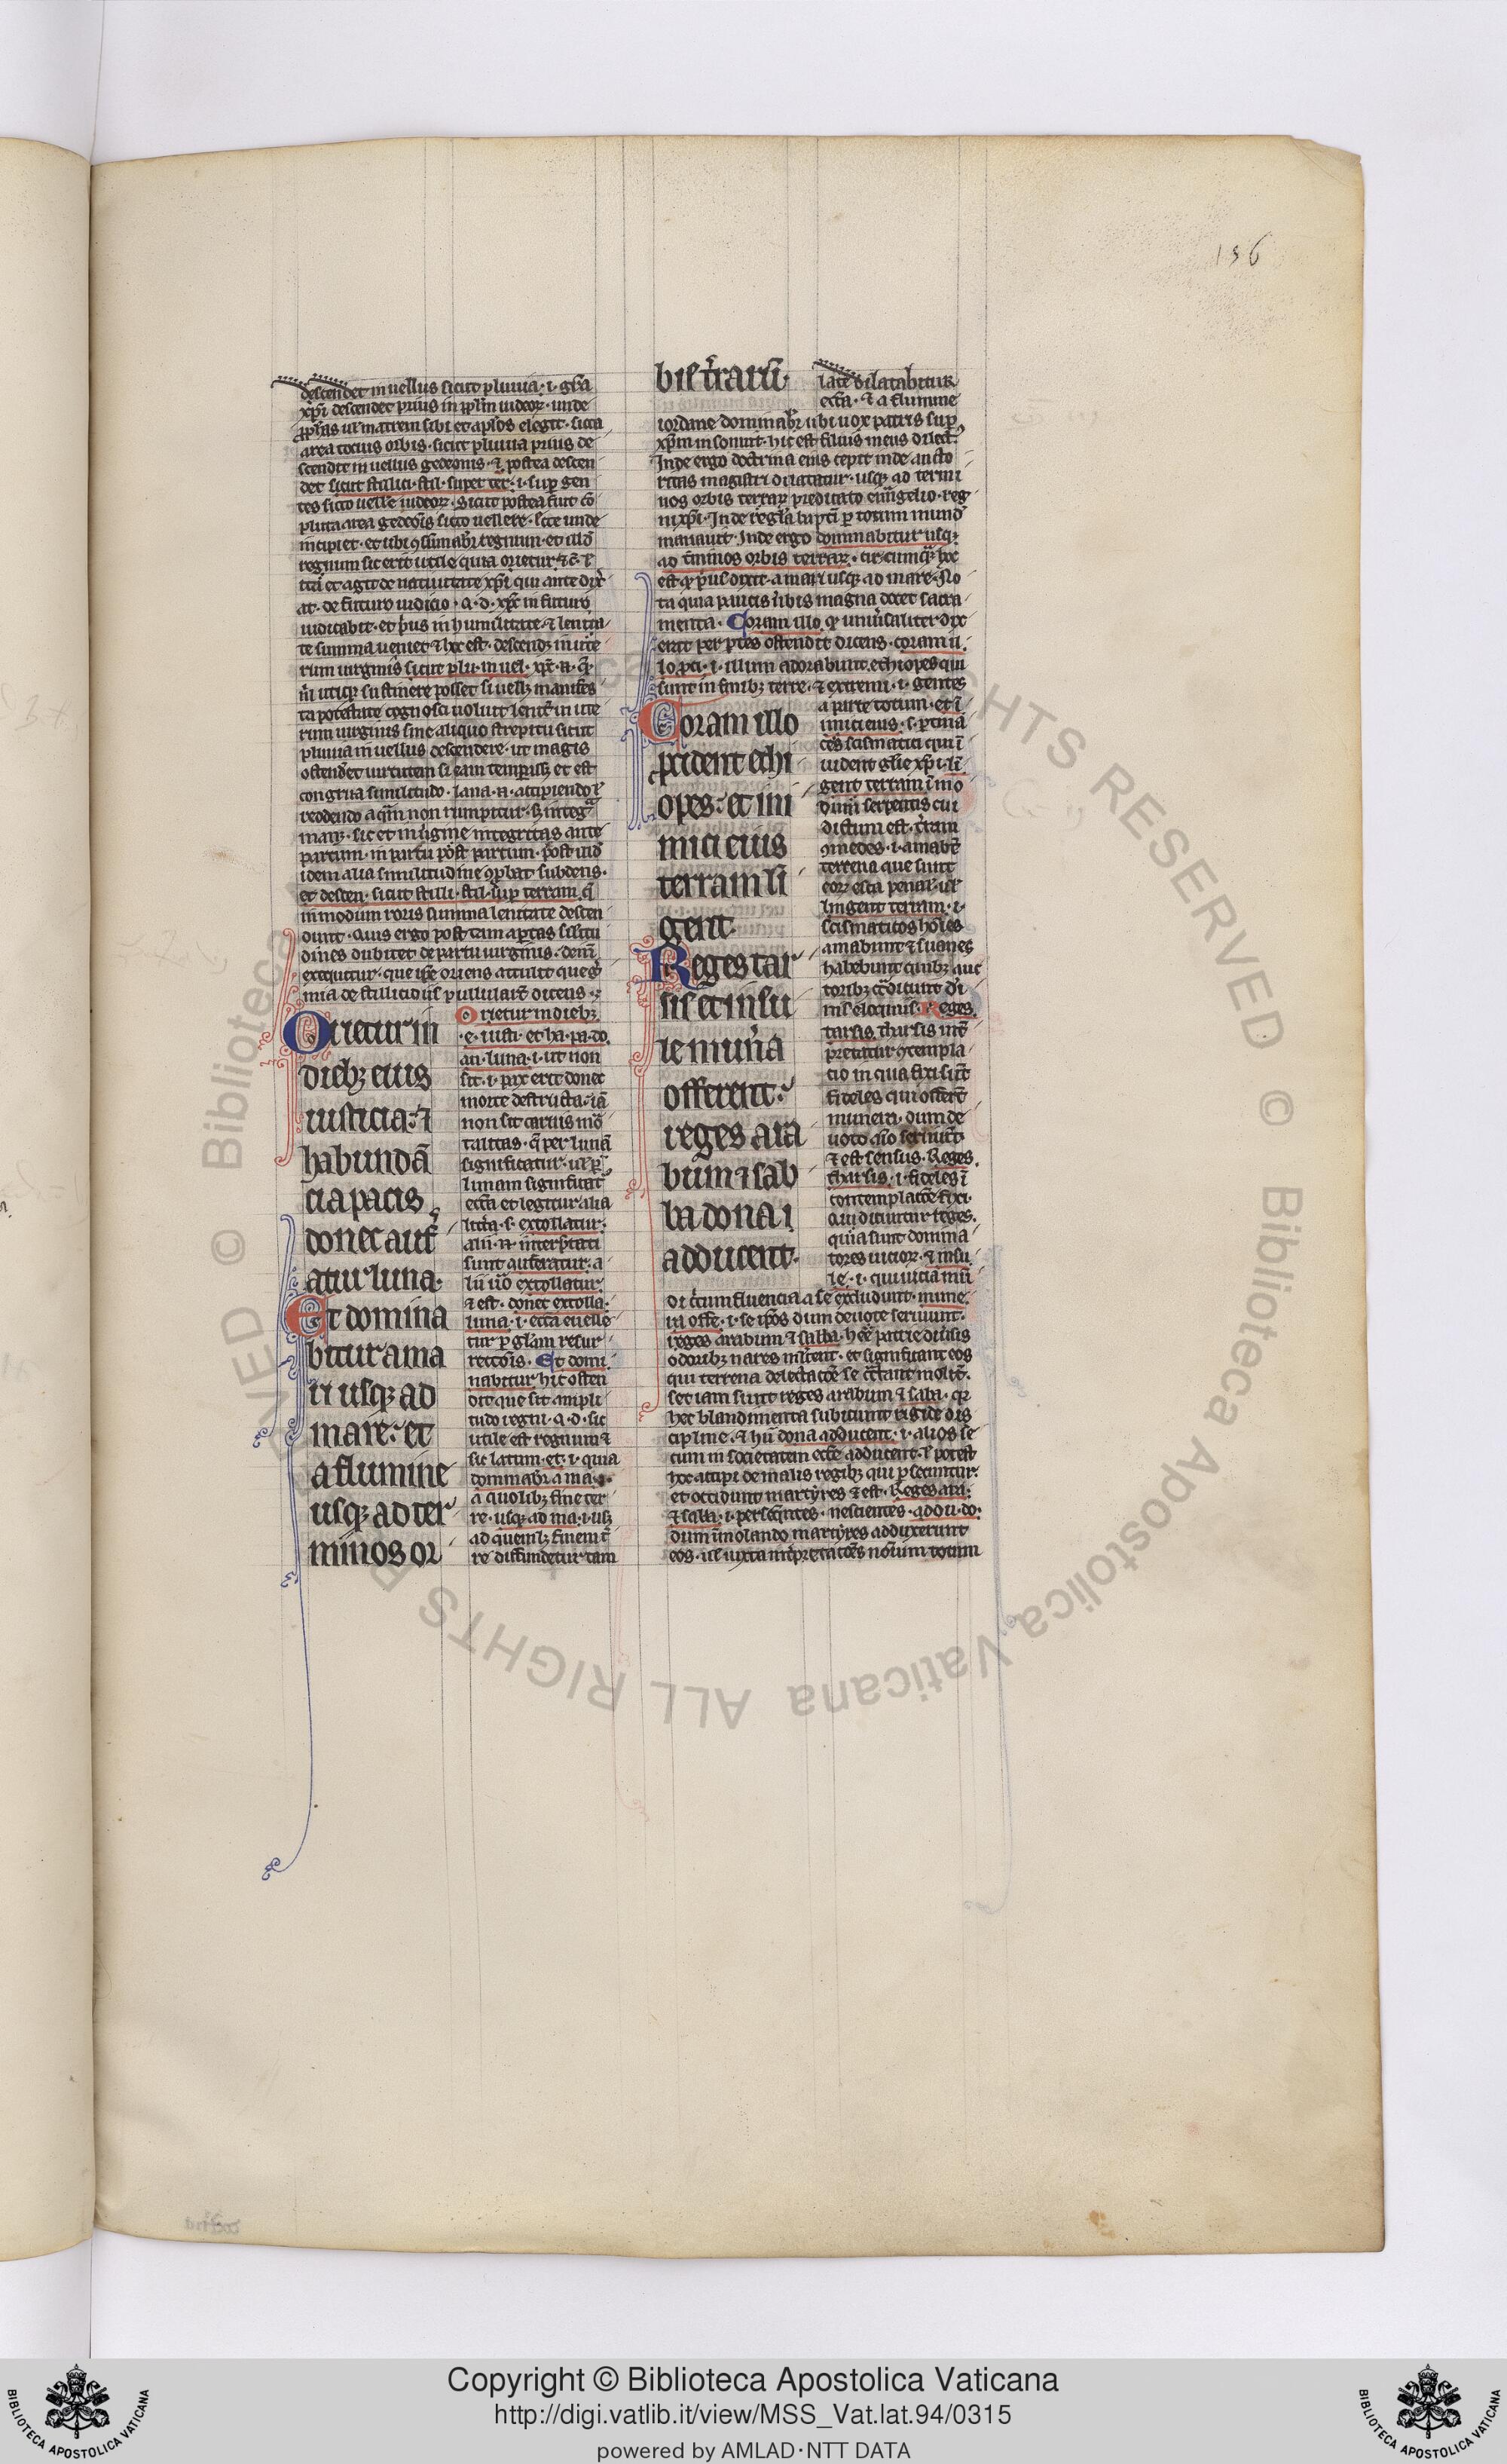 136
descendet in uellus sicut pluuia · i · gr̃a
xp̃i descendet prius in pp̃lm iudeoꝝ · unde
area tocius orbis · sicut pluuia prius de
scendit in uellus gedeonis · ⁊ postea descen
det sicut stillici · stil · super ter · i · sup gen
tes sicco uellere iudeoꝝ · Sicut postea fuit cõ
pluta area gedeõis sicco uellere · Ecce unde
incipiet · et ubi ꝯsũmabr̃ regnum · et illd̃
regnum sic erit utile quia orietur
at · de futuro iudicio · q · d · xp̃c in futuro
iudicabit · et p̃us in humilitate ⁊ lenita
te summa ueniet ⁊ hoc est · descendꝫ in ute
rum uirginis sicut plu · in uel ·
ta potestate cognosci uoluit lenit̃ in ute
rum uirginis sine aliquo strepitu sicut
pluuia in uellus descendere · ut magis
congrua similitudo · lana · n · accipiendo ł
reddendo aquã non rumpitur · sꝫ integra
manꝫ · sic et in uirgine integritas ante
partum · in partu post partum · post
idem alia similitudine ꝓbat subdens ·
et descen · sicut stilli · stil · sup terram · q̃
in modum roris summa lenitate descen
dunt · Quis ergo post tam aptas
dines dubitet de partu uirginis · dein̄
exequitur · que iste oriens attulit que
mia de stillicidiis pullulaint dicens ·
Orietur in
diebꝫ eius
iusticia · ⁊
habundã
cia pacis
donec auf
atur luna ·
Et domina
bitur a ma
ri usqꝫ ad
mare · et
a flumine
usqꝫ ad ter
minos or
Orietur in diebꝫ
· e · iusti · et ha · pa · do
au · luna · i · ut non
sit · i · pax erit donec
morte destructa iã
non sit carnis mor
talitas · q̃ per lunã
significatur · uł p
lunam significat̃
ecc̃a et legitur alia
litt̃a · s · extollatur ·
alii · n · interp̃tati
sunt auferatur · a
lii u̾o extollatur
⁊ est · donec extolla ·
luna · i · ecc̃a eleue
tur p gl̃iam resur
rectõis · Et domi
nabitur hic osten
dit que sit ampli
tudo regni · q · d · sic
utile est regnum ⁊
sic latum · et · i · quia
dominabr̃ a ma ·
a quolibꝫ fine ter
re · usqꝫ ad ma · i · usqꝫ
ad quemlꝫ finem t̃
re diffundetur tam
bis t̃rarũ ·
late dilatabitur
ecc̃a · ⁊ a flumine
iordane dominabr̃ ubi uox patris sup
xp̃m insonuit · hic est filius meus dilect̃ ·
Inde ergo doctrina eius cepit inde aucto
ritas magistri dilatatur · usqꝫ ad termi
nos orbis terraꝝ predicato eũngelio · reg
ni xp̃i · Inde regla bapti p totum mund̃
manauit · Inde ergo dominabitur usqꝫ
ad t̃minos orbis terraꝝ · circumqꝫ hoc
est qd̃ p̃us dixit · a mari usqꝫ ad mare · No
ta quia paucis ũbis magna docet sacra
menta · Coram illo · qd̃ uniũsaliter dix
erat per ptes ostendit dicens · coram il
lo · pci · i · illum adorabunt ethiopes qui
sunt in finibꝫ terre · ⁊ extremi · i · gentes
Coram illo
pcident ethi
opes · et ini
mici eius
terram lĩ
gent ·
Reges tar
sis et insu
le mun̾a
offerent ·
reges ara
bum ⁊ sab
ba dona
adducent ·
a parte totum · et ĩ
imici eius · s · ptina
ces scismatici qui ĩ
uident glie xp̃i · lĩ
gent terram ĩ mo
dum serpentis cui
dictum est · t̃ram
ꝯmedes · i · amabt̃
terrena que sunt
eoꝝ esca penar̃ · uł
lingent terram · i ·
scismaticos hões
amabunt ⁊ suaues
habebunt quibꝫ auc
toribꝫ c̃dicunt di
uis eloquiis · Reges
tarsis · tharsis int̃
p̃tatur ꝯtempla
cio in qua fixi sũt
fideles qui offert̃
munera · dum de
uoto aĩo seruiũt
⁊ est sensus · Reges
tharsis · i · fideles ĩ
contemplacõe fixi ·
Qui dicuntur reges ·
quia sunt domina
tores uicioꝝ · ⁊ insu
le · i · qui uicia mũ
di c̃cumfluencia a se excludunt · mune
ra offe · i · se ip̃os dum deuote seruiunt ·
reges arabum ⁊ sabba · hee patrie diuisis
odoribꝫ nares mulcent · et significant eos
qui terrena delectacõe se
set iam sunt reges arabum ⁊ saba · qꝛ
hec blandimenta subiciunt rigide dis
cipline · ⁊ hii dona adducent · i · alios se
cum in societatem ecc̃e adducent · ł potest
hoc accipi de malis regibꝫ qui psecuntur ·
et occidunt martyres ⁊ est · Reges ara ·
⁊ saba · i · persequentes · nescientes · addu · do ·
dum ĩmolando martyres adduxerunt
eos · uł iuxta int̾pretacões nomũm totum
Copyright © Biblioteca Apostolica Vaticana
http://digi.vatlib.it/view/MSS_Vat.lat.94/0315
powered by AMLAD·NTT DATA
BIBLIOTECA APOSTOLICA VATICANA
BIBLIOTECA APOSTOLICA VATICANA